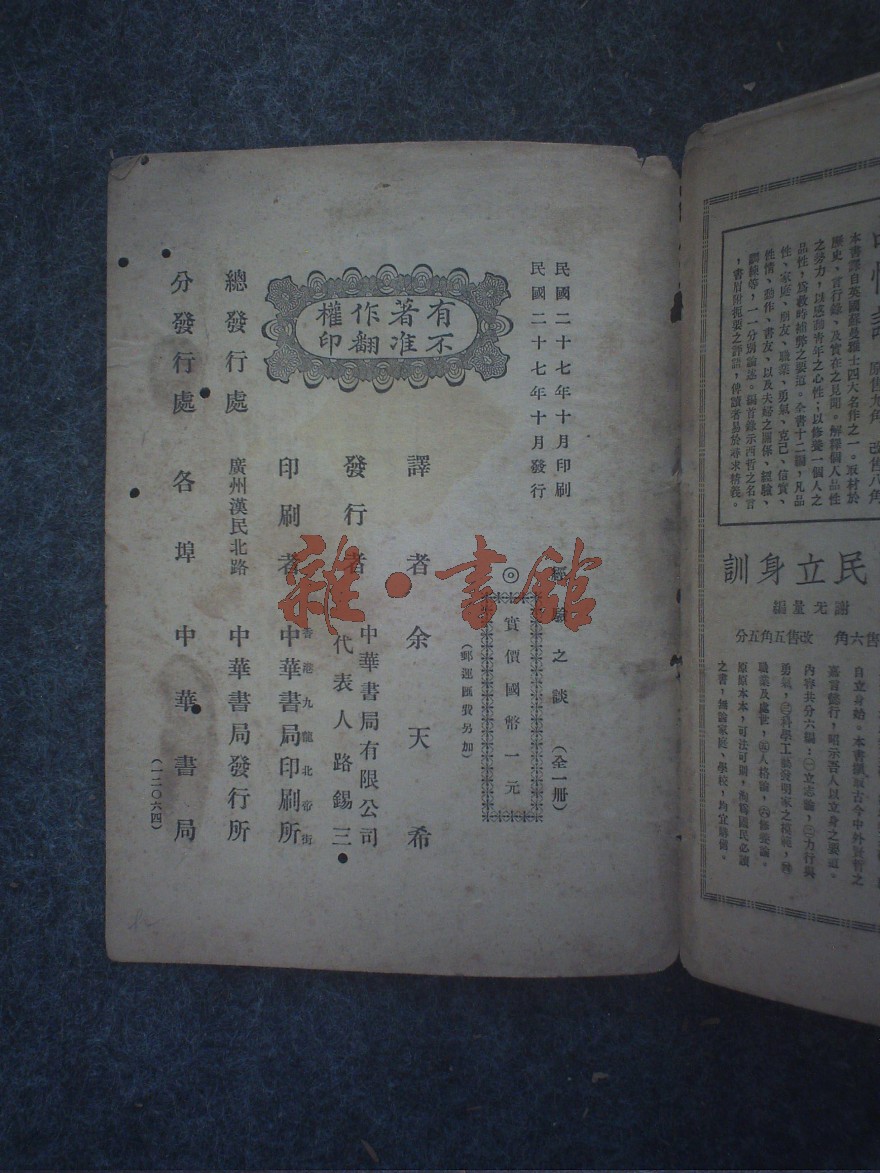 民國二十七年十月印刷
民國二十七年十月發行
有不
著准
作翻
權印
經驗之談 (全一册)
◎實價國幣一元
(郵運匯費另加)
譯者余天希
發行者 中華書局有限公司
代表人路錫三
印刷者 香港九龍北帝街
中華書局印刷所
總發行處 廣州漢民北路 中華書局發行所
分發行處 各埠中華書局
(一二〇六四)
雜·書館
原售九角 改售八角
本書譯自英國蘇曼雅士四大名作之一。取材於
歷史、言行錄、及實在之見聞。解釋個人品性
之勞力,以感動青年之心性;以修養一個人之
品性,爲救時補弊之要道。全書十二編,凡品
性、家庭、朋友、職業、勇氣、克己、信實、
性情、動作、書友、以及夫婦之關係、經驗、
鍛練等,一一分別論述。編首錄示西哲之名言
,書眉附提要之評語,俾讀者易於尋求精義。
民立身訓
謝无量編
售六角 改售五角五分
自立身始。本書擷取古今中外賢哲之
嘉言懿行,昭示吾人以立身之要道。
內容共分六編:㊀立志論,㊁力行與
勇氣,㊂科學工藝發明家之模範,㊃
職業及處世,㊄人格論,㊅修養論。
原原本本,可法可則,洵爲國民必讀
之書,無論家庭、學校,均宜購備。